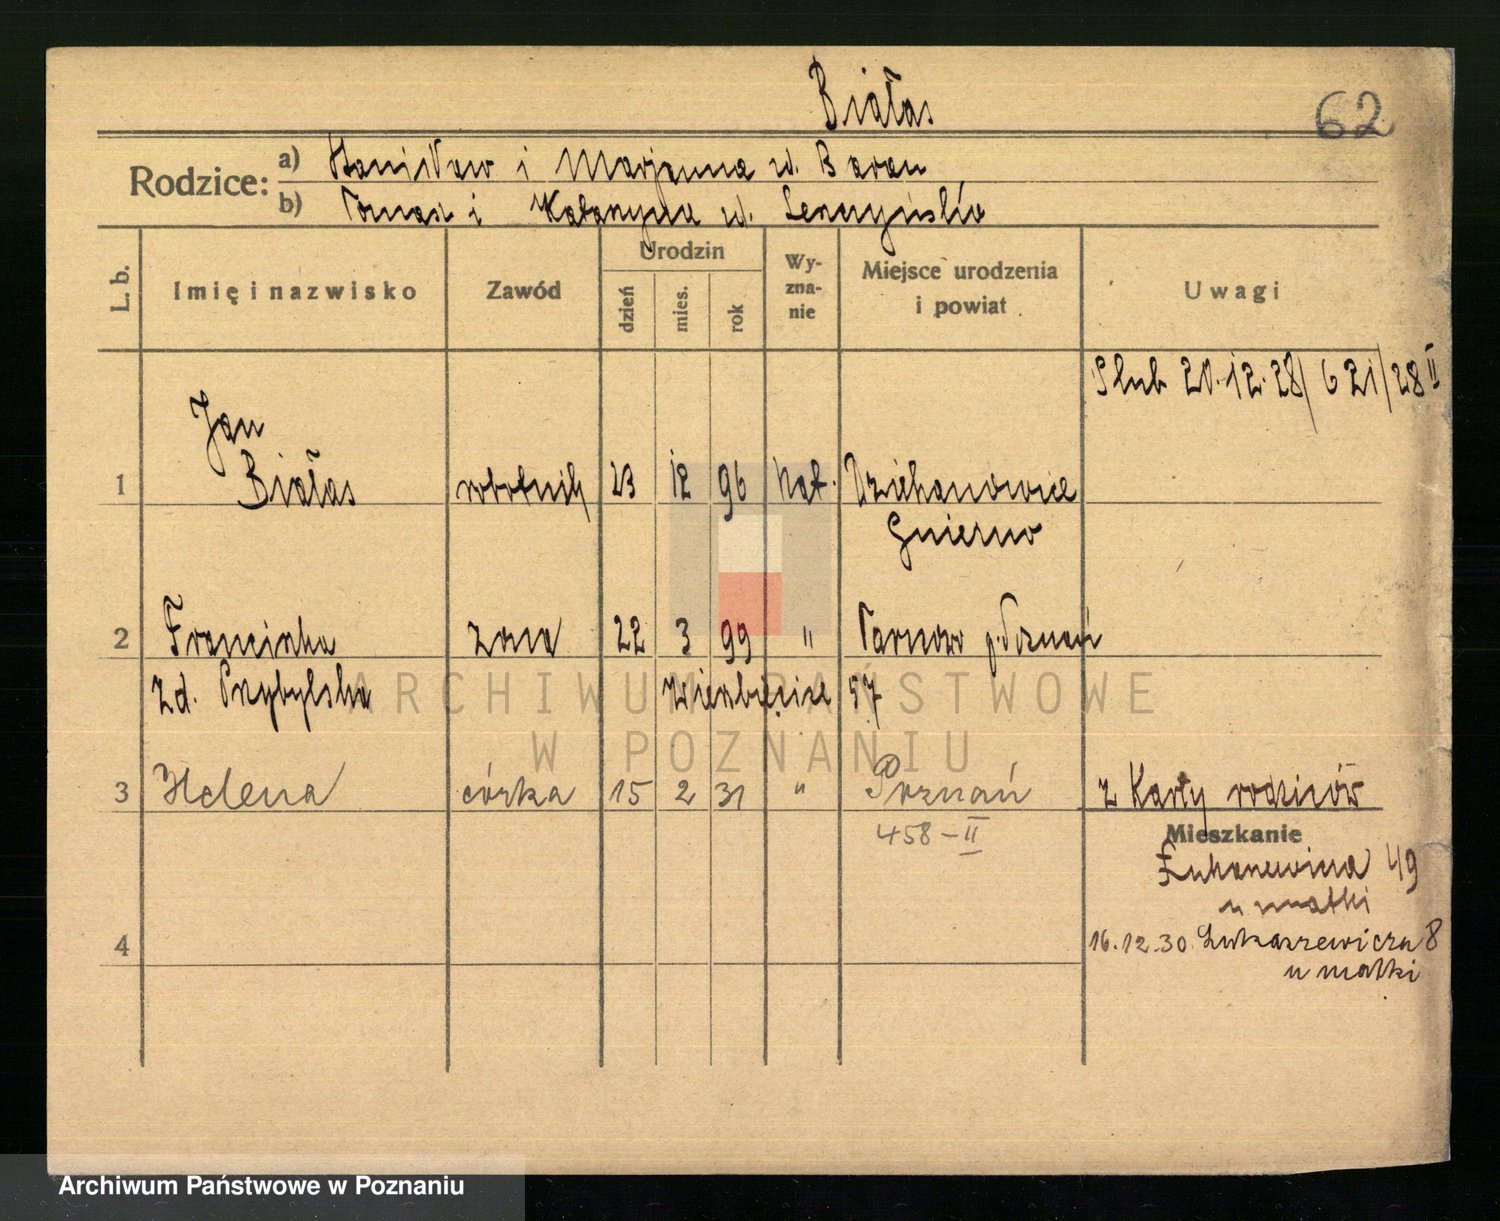 Białas
62
Rodzice: a) Stanisław i Marjanna ur. Baran
b) Tomasz i Katarzyna ur.
L. b. Imię i nazwisko Zawód Urodzin dzień mies. rok Wyznanie Miejsce urodzenia i powiat Uwagi
Slub 20.12.28/621/28 II
Jan
1 Białas robotnik 23 12 96 kat. Dziekanowice
Gniezno
2 Franciszka żona 22 3 99 " Tarnowo p. Poznań
zd. Przybylska Wierzbięcice 57
3 Helena córka 15 2 31 " Poznań z Karty rodziców
458-II
Mieszkanie
49
u matki
4 16.12.30. Łukaszewicza 8
u matki
ARCHIWUM PAŃSTWOWE
W POZNANIU
Archiwum Państwowe w Poznaniu